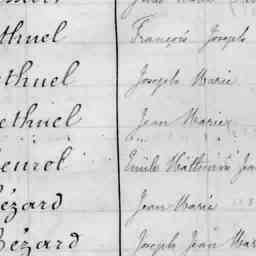 thuel François Joseph
thuel Joseph Marie
ethuel Jean Marie
eurol Emile Mathurin Jea
ézard Jean Marie
Bézard Joseph Jean Mar